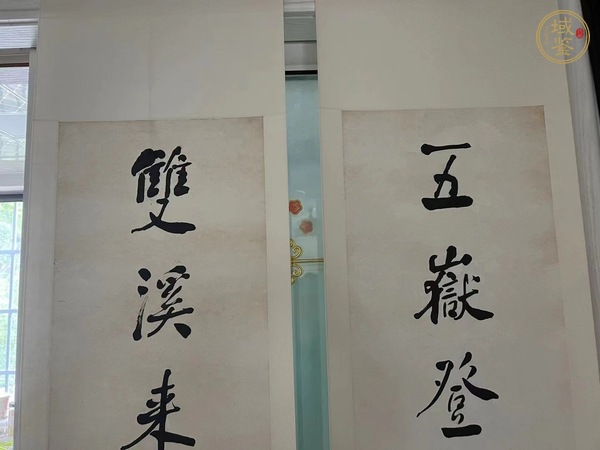 五嶽登
雙溪来
域鉴